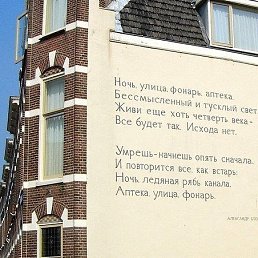 Ночь, улица, фонарь, аптека,
Бессмысленный и тусклый свет
Живи еще хоть четверть века -
Все будет так. Исхода нет.
Умрешь-начнешь опять сначала,
И повторится все, как встарь:
Ночь, ледяная рябь канала,
Аптека, улица, фонарь.
АЛЕКСАНДР